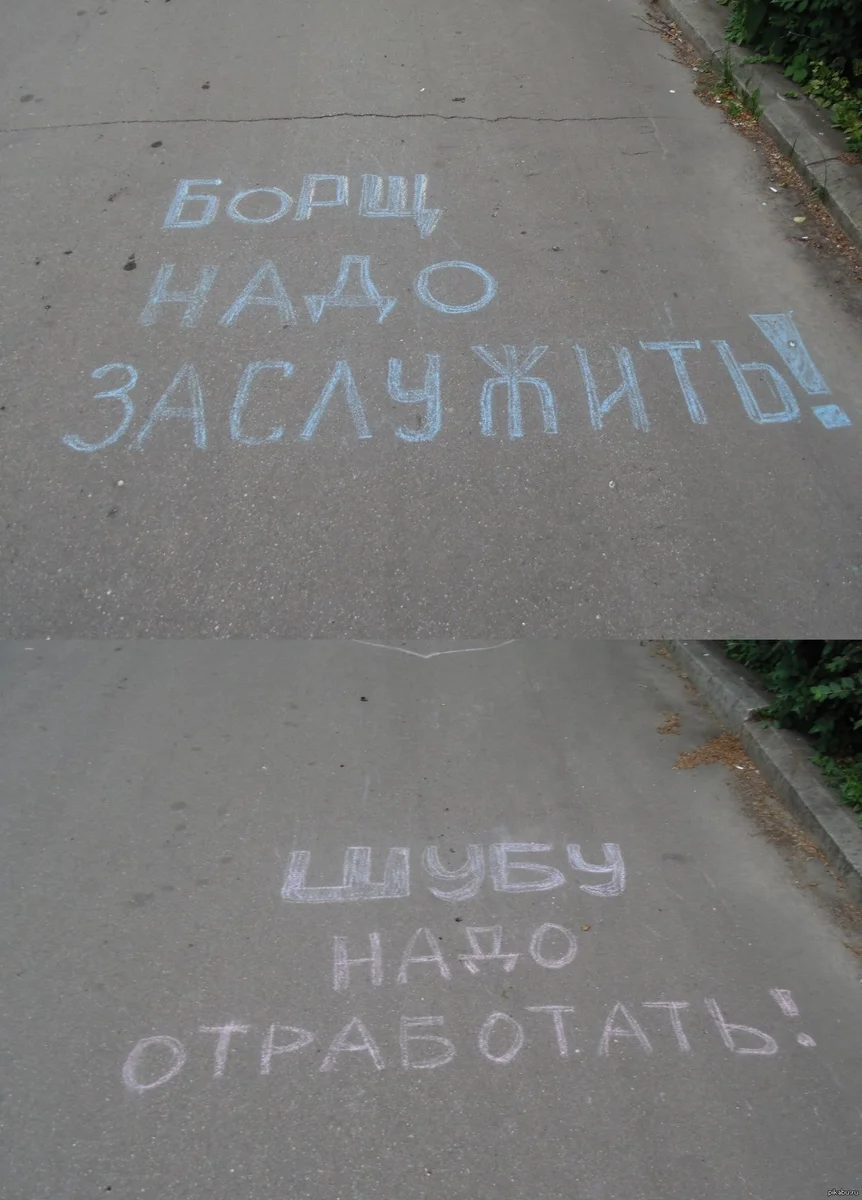 БОРЩ
НАДО
ЗАСЛУЖИТЬ!
ШУБУ
НАДО
ОТРАБОТАТЬ!
pikabu.ru